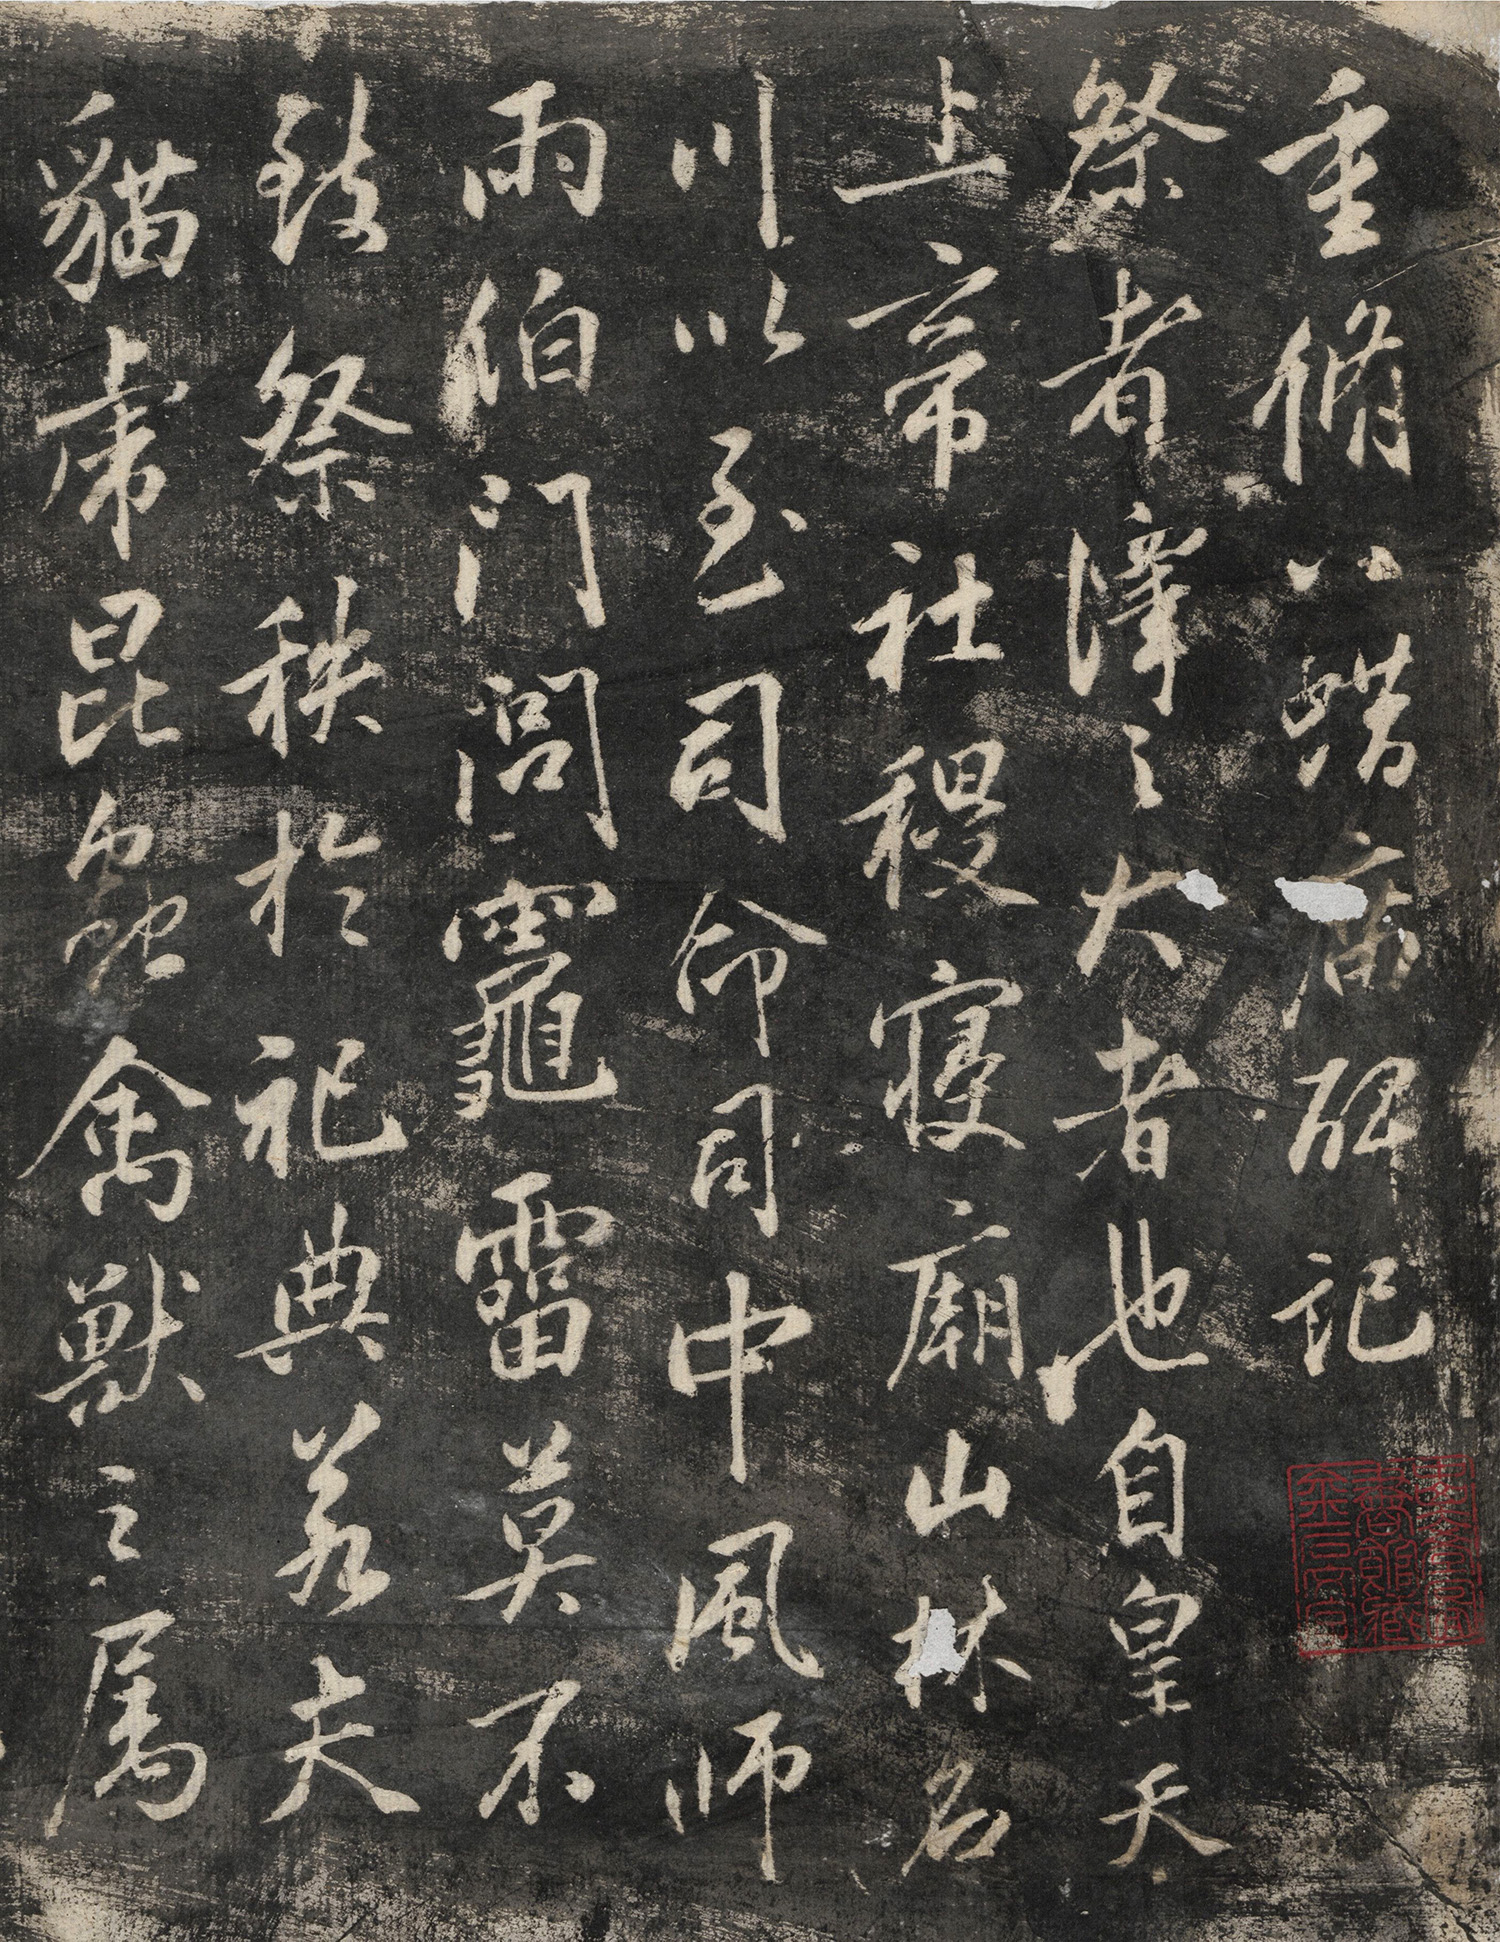 重脩八蜡廟碑記
祭者澤之大者也自皇天
上帝社稷寝廟山林名
川以至司命司中風師
雨伯門閭竈霤莫不
致祭秩於祀典若夫
貓虎昆蟲禽獸之属